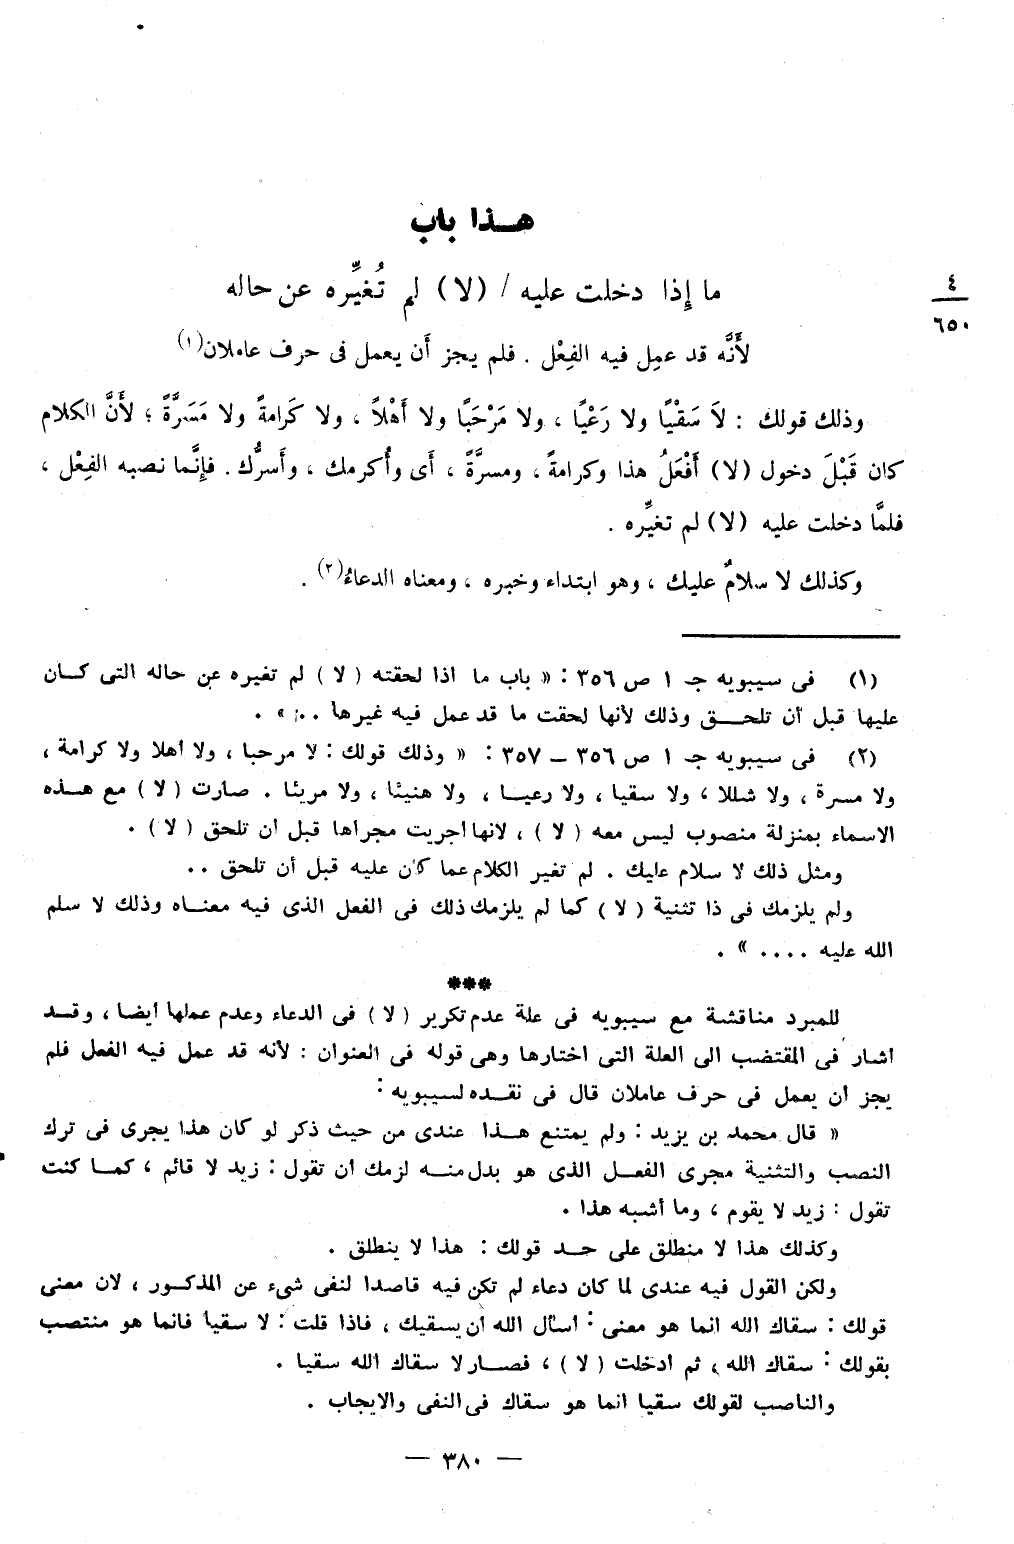 هـــذا باب
ما إِذا دخلت عليه / (لا) لم تُغيِّره عن حاله
٤
٦٥٠
لأَنَّه قد عمِل فيه الفِعْل . فلم يجز أَن يعمل فى حرف عاملان(١)
وذلك قولك : لاَ سَقْيًا ولا رَعْيًا ، ولا مَرْحَبًا ولا أَهْلاً ، ولا كَرامةً ولا مَسَرَّةً ؛ لأَنَّ الكلام
كان قَبْلَ دخول (لا) أَفْعَلُ هذا وكرامةً ، ومسرَّةً ، أَى وأُكرمك ، وأَسرُّك . فإِنَّما نصبه الفِعْل ،
فلمَّا دخلت عليه (لا) لم تغيِّره .
وكذلك لا سلامٌ عليك ، وهو ابتداء وخبره ، ومعناه الدعاءُ(٢) .
(١) فى سيبويه جـ ١ ص ٣٥٦ : « باب ما اذا لحقته ( لا ) لم تغيره عن حاله التى كـــان
عليها قبل أن تلحـــق وذلك لأنها لحقت ما قد عمل فيه غيرها ... » .
(٢) فى سيبويه جـ ١ ص ٣٥٦ ــ ٣٥٧ : « وذلك قولك : لا مرحبا ، ولا أهلا ولا كرامة ،
ولا مسرة ، ولا شللا ، ولا سقيا ، ولا رعيـــا ، ولا هنيئا ، ولا مريئا . صارت ( لا ) مع هــذه
الاسماء بمنزلة منصوب ليس معه ( لا ) ، لانها أجريت مجراها قبل أن تلحق ( لا ) .
ومثل ذلك لا سلام عليك . لم تغير الكلام عما كان عليه قبل أن تلحق ..
ولم يلزمك فى ذا تثنية ( لا ) كما لم يلزمك ذلك فى الفعل الذى فيه معنــاه وذلك لا سلم
الله عليه .... » .
***
للمبرد مناقشة مع سيبويه فى علة عدم تكرير ( لا ) فى الدعاء وعدم عملها أيضا ، وقــد
أشار فى المقتضب الى العلة التى اختارها وهى قوله فى العنوان : لأنه قد عمل فيه الفعل فلم
يجز أن يعمل فى حرف عاملان قال فى نقــده لسيبويه :
« قال محمد بن يزيد : ولم يمتنع هـــذا عندى من حيث ذكر لو كان هذا يجرى فى ترك
النصب والتثنية مجرى الفعــل الذى هو بدل منــه لزمك أن تقول : زيد لا قائم ، كمــا كنت
تقول : زيد لا يقوم ، وما أشبه هذا .
وكذلك هذا لا منطلق على حــد قولك : هذا لا ينطلق .
ولكن القول فيه عندى لما كان دعاء لم تكن فيه قاصدا لنفى شىء عن المذكــور ، لان معنى
قولك : سقاك الله انما هو معنى : أسأل الله أن يسقيك ، فاذا قلت : لا سقيا فانما هو منتصب
بقولك : سقاك الله ، ثم أدخلت ( لا ) ، فصــار لا سقاك الله سقيا .
والناصب لقولك سقيا انما هو سقاك فى النفى والايجاب .
— ٣٨٠ —